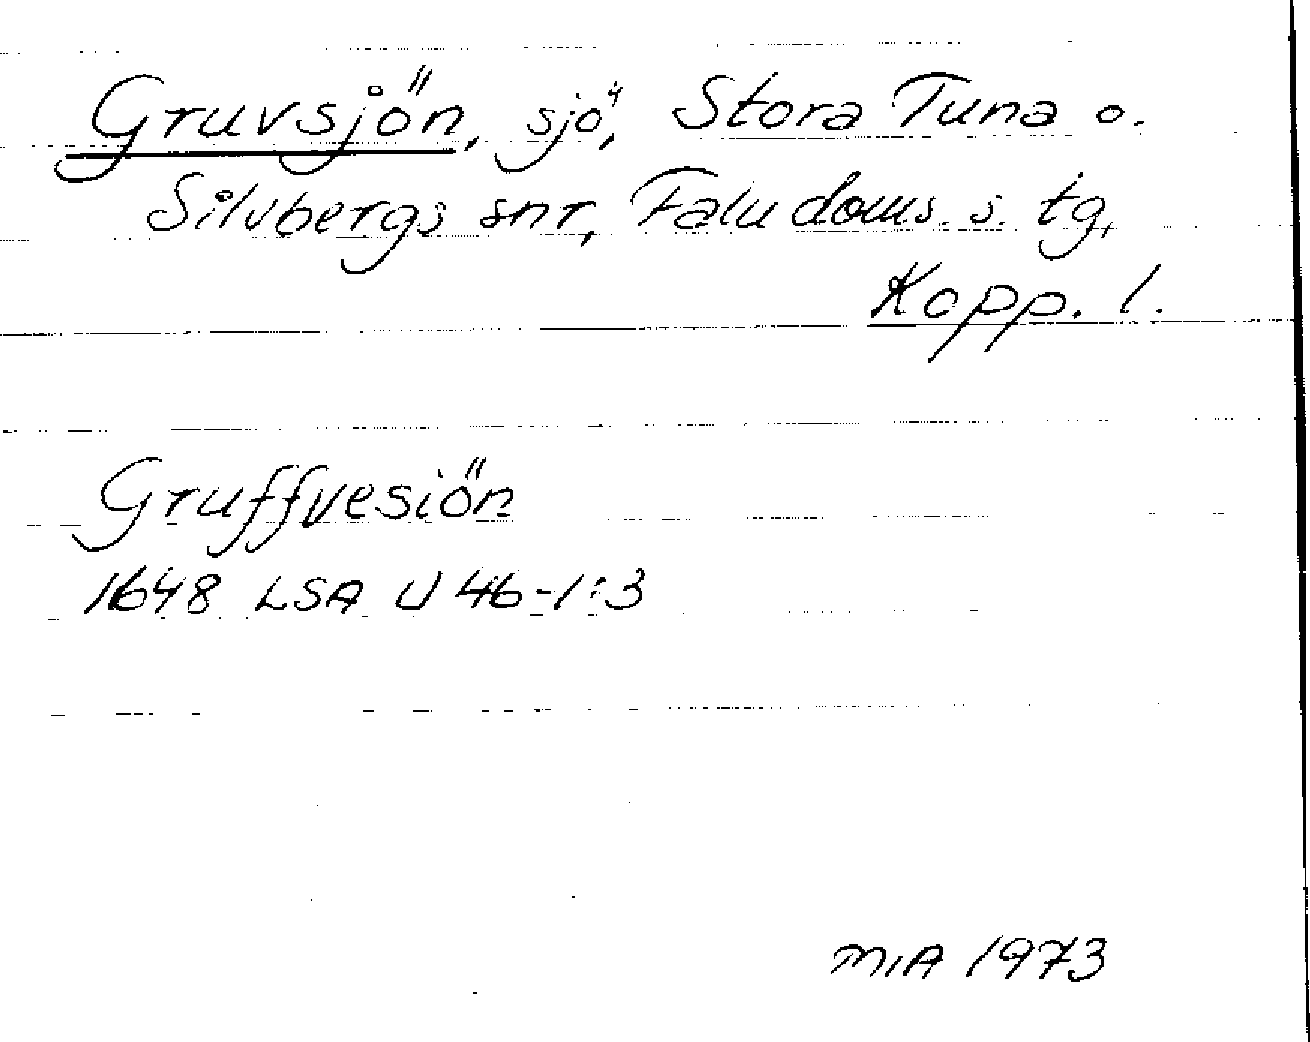 Gruvsjön, sjö, Stora Tuna o.
Silvbergs snr, Falu doms. s. tg,
Kopp. l.
Gruffvesiön
1648 LSA U 46-1:3
MIA 1973